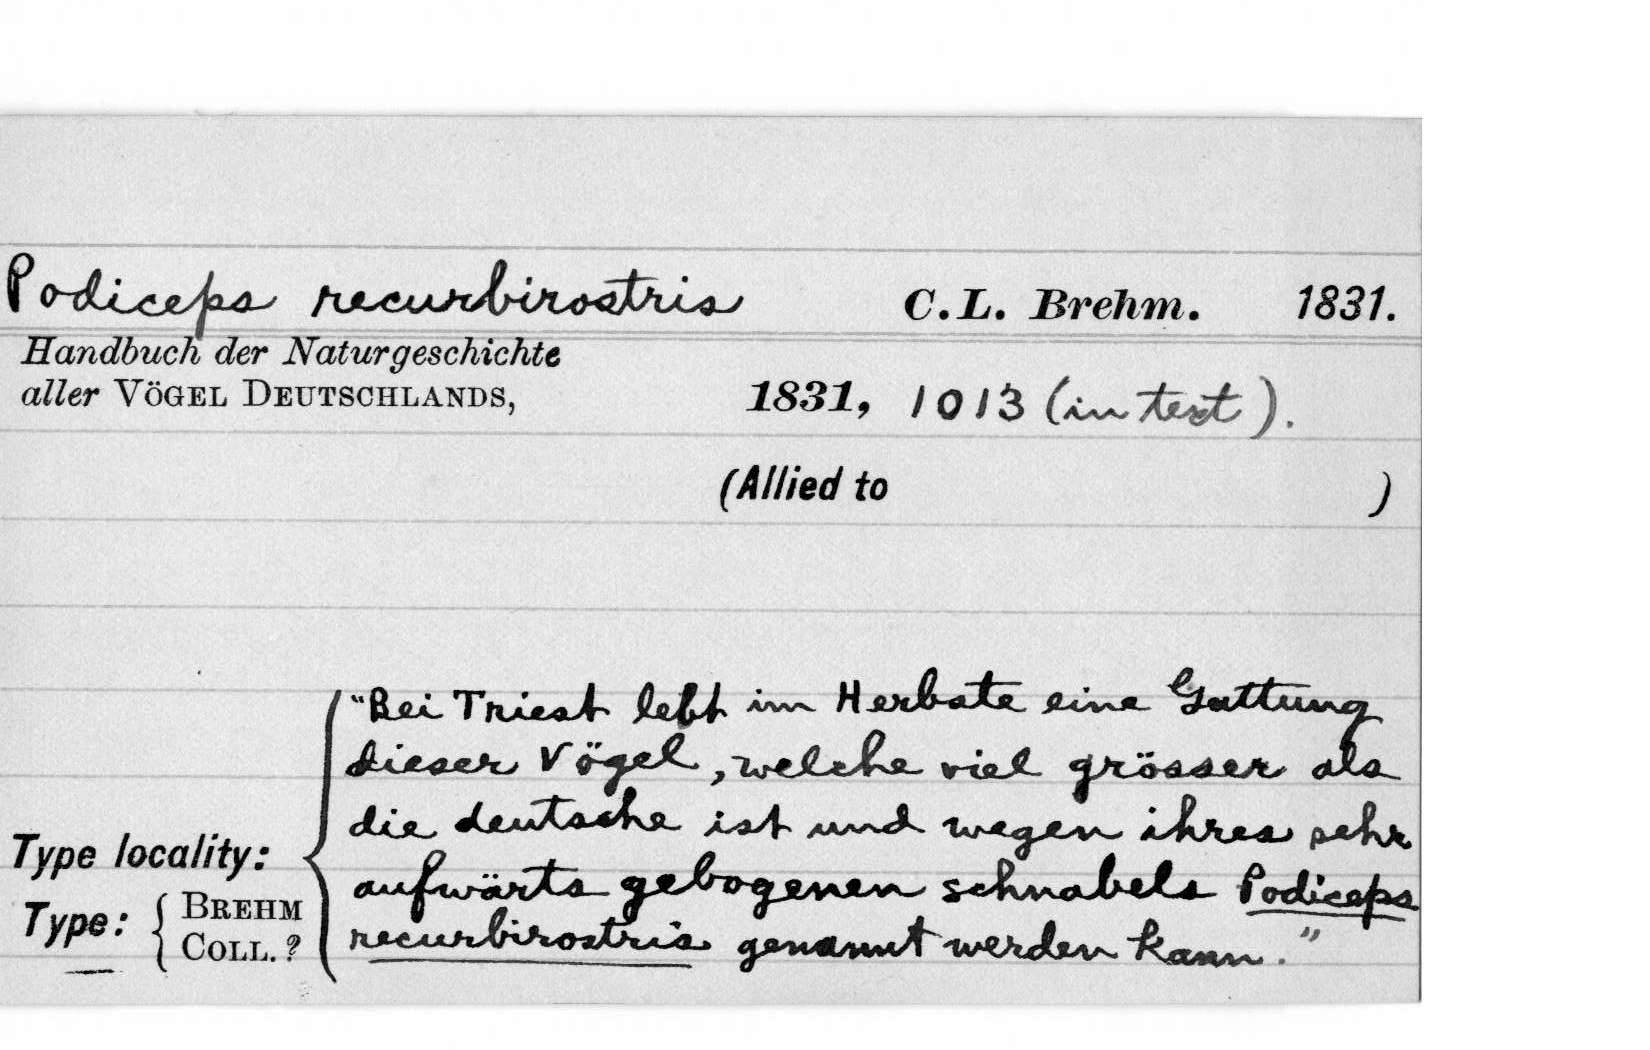 Podiceps recurbirostris C.L. Brehm. 1831.
Handbuch der Naturgeschichte
aller VÖGEL DEUTSCHLANDS, 1831, 1013 (in text).
(Allied to )
"Bei Triest lebt im Herbste eine Gattung
dieser Vögel, welche viel grösser als
die deutsche ist und wegen ihres sehr
Type locality: aufwärts gebogenen schnabels Podiceps
Type: { BREHM COLL. ? recurbirostris genannt werden kann."